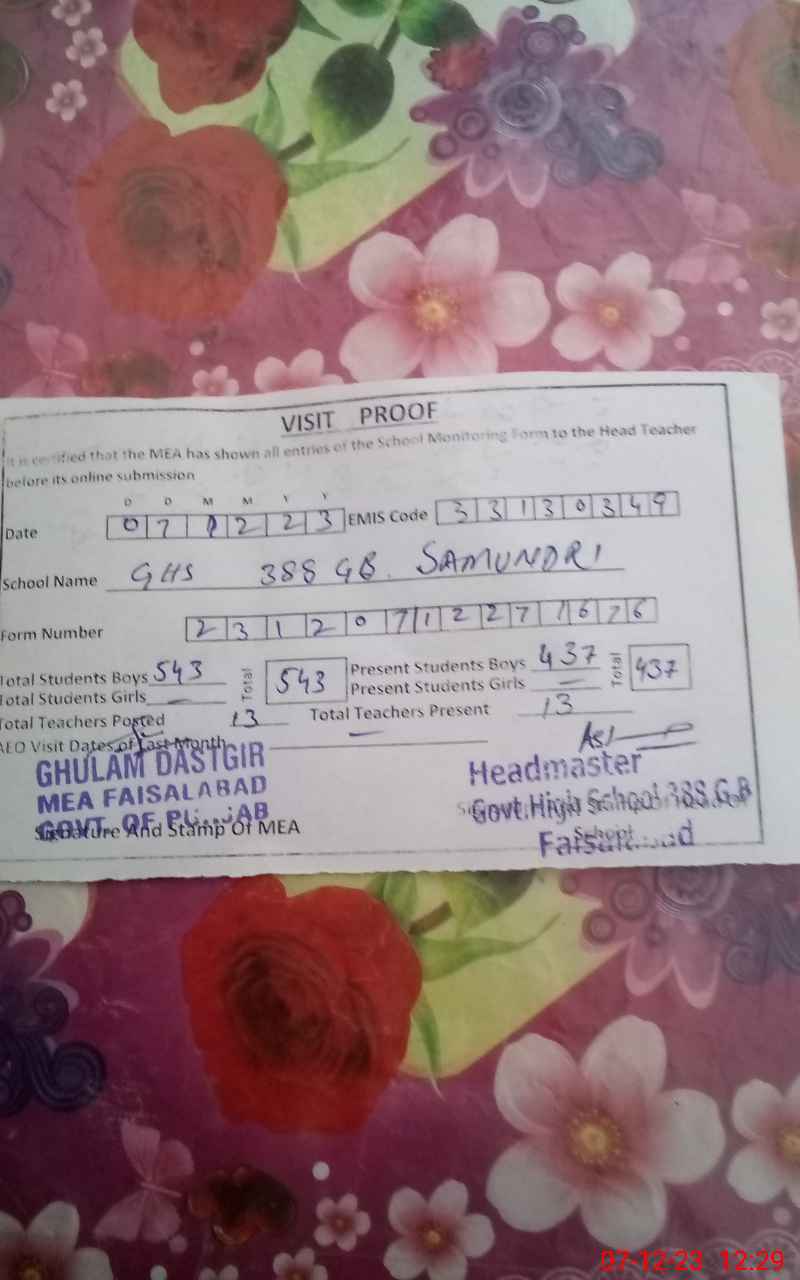 VISIT PROOF
It is certified that the MEA has shown all entries of the School Monitoring Form to the Head Teacher
before its online submission
D D M M Y Y
Date 071223 EMIS Code 33130349
School Name GHS 388 GB. SAMUNDRI
Form Number 231207122771676
Total Students Boys 543 Total 543 Present Students Boys 437 Total 437
Total Students Girls — Present Students Girls —
Total Teachers Posted 13 Total Teachers Present 13
AEO Visit Dates of Last Month —
GHULAM DASTGIR
MEA FAISALABAD
GOVT. OF PUNJAB
Signature And Stamp Of MEA
Headmaster
Govt.High School 388 G.B
School
Faisalabad
07-12-23 12:29